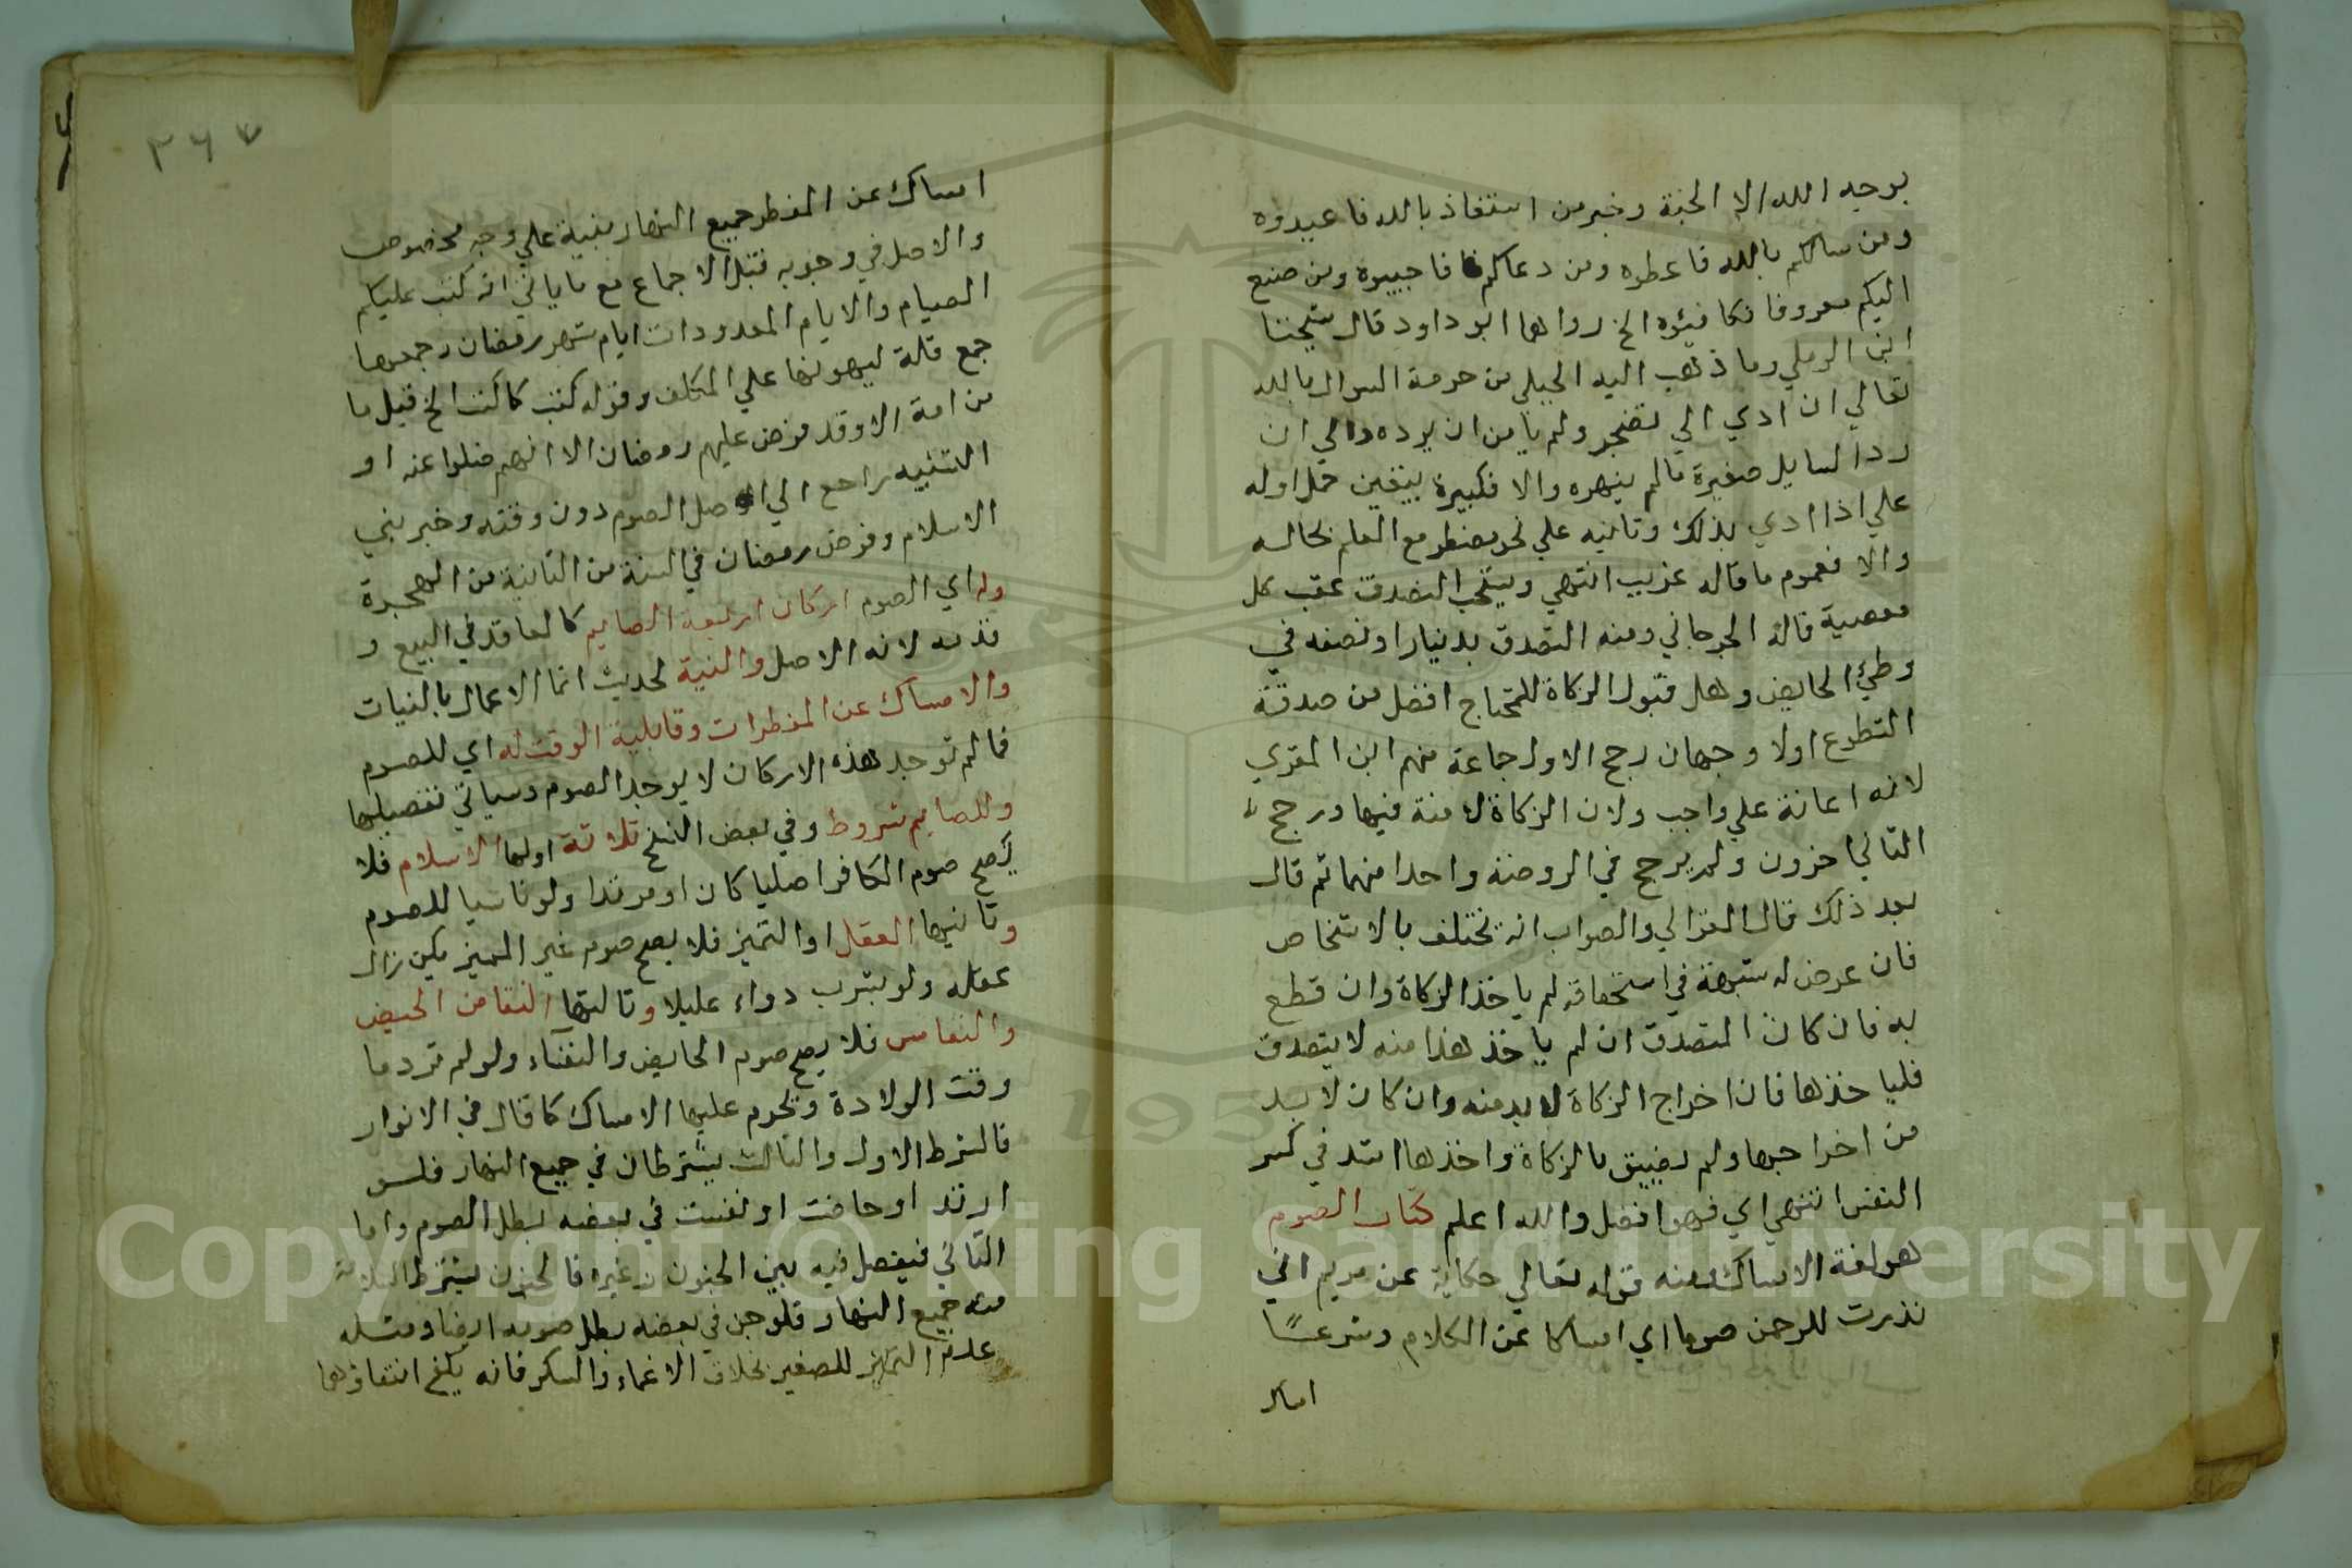 بوجه الله الا الجنة وخبر من استعاذ بالله فاعيدوه
ومن سالكم بالله فاعطوه ومن دعاكم فاجيبوه ومن صنع
اليكم معروفا فكافيئوه الخ رواهما ابو داود قال شيخنا
ابن الرملي وما ذهب اليه الحليمي من حرمة السوال بالله
تعالي ان ادي الي تضجر ولم يا من ان يرده والي ان
رد السايل صغيرة مالم ينهره والا فكبيرة يتعين حمل اوله
علي اذا ادي بذلك وثانيه علي نحو مضطر مع العلم بحاله
والا فعموم ما قاله غريب انتهي ويستحب التصدق عقب كل
معصية قاله الجرجاني ومنه التصدق بدينار او نصفه في
وطيء الحايض وهل قبول الزكاة للمحتاج افضل من صدقة
التطوع اولا وجهان رجح الاول جماعة منهم ابن المقري
لانه اعانة علي واجب ولان الزكاة لا منة فيها ورجح
الثاني اخرون ولم يرجح في الروضة واحدا منهما ثم قال
بعد ذلك قال الغزالي والصواب انه يختلف بالاشخاص
فان عرض له شبهة في استحقاقه لم ياخذ الزكاة وان قطع
به فان كان المتصدق ان لم ياخذ هذا منه لا يتصدق
فلياخذها فان اخراج الزكاة لا بد منه وان كان لا بد
من اخراجها ولم يضيق بالزكاة واخذها اشد في كسر
النفس انتهي اي فهو افضل والله اعلم كتاب الصوم
هو لغة الامساك ومنه قوله تعالي حكاية عن مريم اني
نذرت للرحمن صوما اي امساكا عن الكلام وشرعا
امساك
٣٦٧
امساك عن المفطر جميع النهار بنية علي وجه مخصوص
والاصل في وجوبه قبل الاجماع مع ما ياتي اية كتب عليكم
الصيام والايام المعدودات ايام شهر رمضان وجمعها
جمع قلة ليهونها علي المكلف وقوله كتب كما كتب الخ قيل ما
من امة الا وقد فرض عليهم رمضان الا انهم ضلوا عنه او
التشبيه راجع الي اصل الصوم دون وقته وخبر بني
الاسلام وفرض رمضان في السنة من الثانية من الهجرة
وله اي الصوم اركان اربعة الصايم كالعاقد في البيع و
قدمه لانه الاصل والنية لحديث انما الاعمال بالنيات
والامساك عن المفطرات وقابلية الوقت له اي للصوم
فما لم توجد هذه الاركان لا يوجد الصوم وسياتي تفصيلها
وللصايم شروط وفي بعض النسخ ثلاثة اولها الاسلام فلا
يصح صوم الكافر اصليا كان او مرتدا ولو ناسيا للصوم
وثانيها العقل او التميز فلا يصح صوم غير المميز كمن زال
عقله ولو بشرب دواء عليلا وثالثها النقا من الحيض
والنفاس فلا يصح صوم الحايض والنفساء ولو لم تر دما
وقت الولادة ويحرم عليها الامساك كما قال في الانوار
فالشرط الاول والثالث يشترطان في جميع النهار فلو
ارتد او حاضت او نفست في بعضه بطل الصوم واما
الثاني فيفصل فيه بين الجنون وغيره فالجنون يشترط السلامة
منه جميع النهار فلو جن في بعضه بطل صومه ايضا ومثله
عدم التميز للصغير بخلاف الاغماء والسكر فانه يكفي انتفاوهما
Copyright © King Saud University